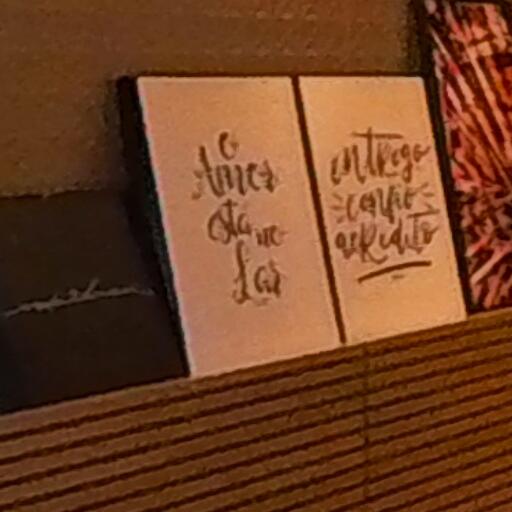 o
Amor
está no
Lar
entrego
confio
acredito